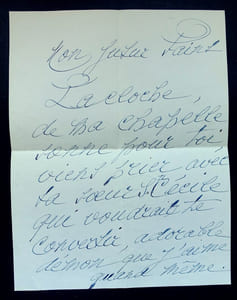 Mon futur Saint
La cloche,
de ma chapelle
sonne pour toi
viens prier avec
ta sœur S. Cécile
qui voudrait te
convertir, adorable
démon que j'aime
quand même.